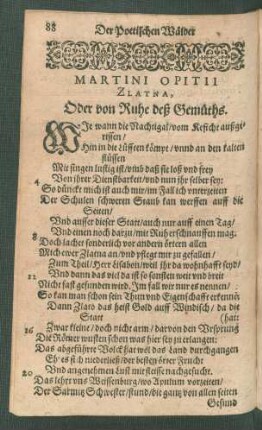 88 Der Poetischen Wälder
MARTINI OPITII
ZLATNA,
Oder von Ruhe deß Gemüths.
WIe wann die Nachtigal/ vom Keficht außge-
rissen/
Hin in die lüfften kömpt/ vnnd an den kalten
flüssen
Mit singen lustig ist/ vnd daß sie loß vnd frey
4 Von ihrer Dienstbarkeit/ vnd nun ihr selber sey:
So dünckt mich ist auch mir/ im fall ich vnterzeiten
Der Schulen schweren Staub kan werffen auff die
Seiten/
Vnd ausser dieser Statt/ auch nur auff einen Tag/
8 Vnd einen noch darzu/ mit Ruh erschnauffen mag:
Doch lacher sonderlich vor andern örtern allen
Mich ewer Zlatna an/ vnd pflegt mir zu gefallen/
Zum Theil/ Herr Lisaben/ weil ihr da wohnhafft seyd/
12 Vnd dann das viel da ist so sonsten weit vnd breit
Nicht fast gefunden wird. Im fall wir nur es nennen/
So kan man schon sein Thun vnd Eigenschafft erkennē:
Dann Zlato das heist Gold auff Windisch/ da die
Statt (hatt
16 Zwar kleine/ doch nicht arm/ darvon den Vrsprung
Die Römer wusten schon was hier sey zu erlangen:
Das abgeführte Volck hat weil das Land durchgangen
Eh' es sich niederließ/ der besten örter Frucht
20 Vnd angenehmen Lust mit fleisse nachgesucht.
Das lehrt vns Weisenburg/ wo Apulum vorzeiten/
Der Sarmitz Schwester/ stund/ die gantz von allen seiten
Gesund